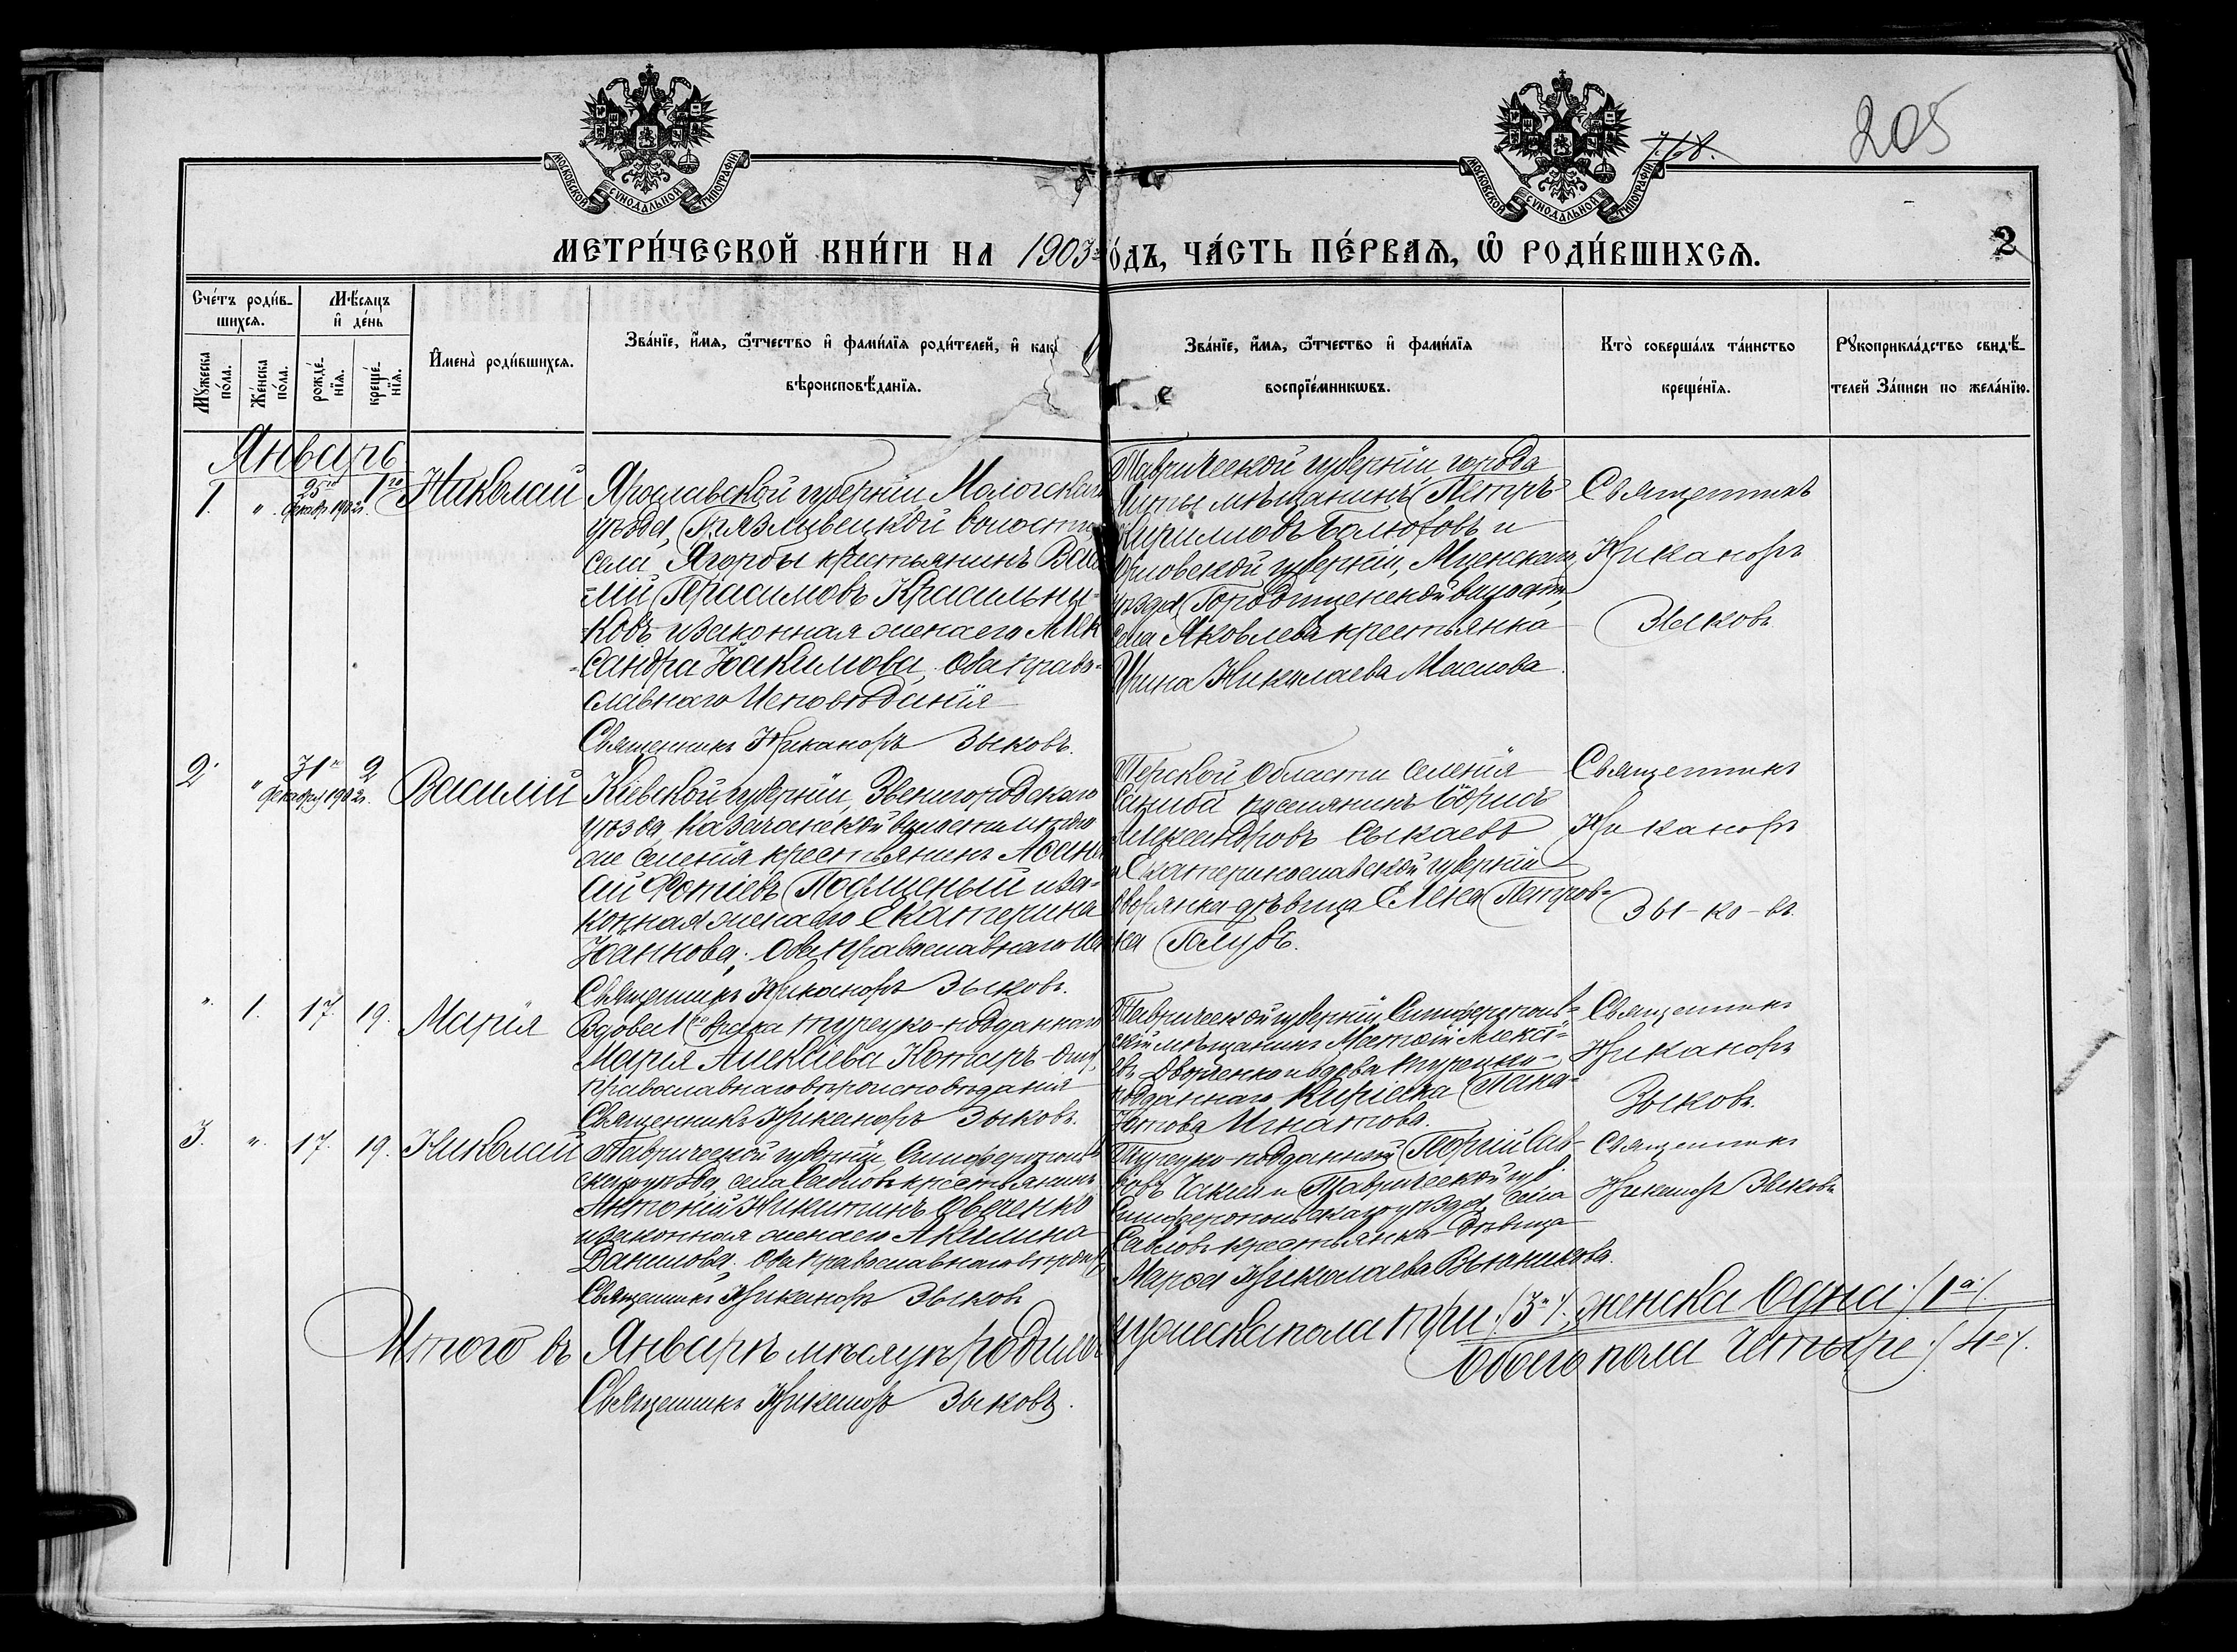 МОСКОВСКОЙ СѴНОДАЛЬНОЙ ТИПОГРАФІИ.
МОСКОВСКОЙ СѴНОДАЛЬНОЙ ТИПОГРАФІИ.
205
МЕТРИ́ЧЕСКОЙ КНИ́ГИ НА 1903 го́дъ, ЧА́СТЬ ПЕ́РВАѦ, Ѿ РОДИ́ВШИХСѦ.
2
Сче́тъ роди́в-
шихся.
Мѣ́сяцъ
и҆ де́нь
Мꙋ́жеска по́ла.
Же́нска по́ла.
рожде́-нїя.
креще́-нїя.
И҆мена̀ роди́вшихся.
Зва́нїе, и҆́мя, ѻ҆́тчество и҆ фами́лїя роди́телей, и҆ како́
вѣроисповѣ́данїя.
Зва́нїе, и҆́мя, ѻ҆́тчество и҆ фами́лїя
воспрїе́мникѡвъ.
Кто̀ соверша́лъ та́инство
креще́нїя.
Рꙋкоприкла́дство свидѣ́-
телей За́писи по жела́нїю.
Январь
1. " 25го Декабр. 1902г. 1го Николай
Ярославской губерніи, Мологскаго
уѣзда, волости,
села Ягорбы крестьянинъ Васи
лій Герасимовъ Красильни=
ковъ и законная жена его Алек
сандра Іоакимова, оба право=
славнаго Исповѣданія
Священникъ Никаноръ Зыковъ.
Таврической губерніи города
Ялты мѣщанинъ Петръ
Кирилловъ и
Орловской губерніи, Мценскаго
уѣзда, Городищенской волости,
села Яковлева крестьянка
Ирина Николаева Маслова.
Священникъ
Никаноръ
Зыковъ
2. " 31го Декабря 1902г. 2 Василій
Кіевской губерніи, Звенигородскаго
уѣзда, Казачанской волости и того
же селенія крестьянинъ Аѳана
сій Фотіевъ и за=
конная жена его Екатерина
Іоаннова; оба Православнаго Ис
Священникъ Никаноръ Зыковъ.
Терской Области селенія
поселянинъ Борисъ
Александровъ
и Екатеринославской губерніи
дворянка-дѣвица Елена Петров=
на Голубъ.
Священникъ
Никаноръ
Зы-ко-въ.
" 1. 17. 19. Марія
Вдова 1го брака турецко-подданнаго
Марія Алексіева
Православнаго вѣроисповѣданія
Священникъ Никаноръ Зыковъ.
Таврической губерніи Симферополь=
скій мѣщанинъ Матѳій Алексі=
евъ и вдова турецко-
подданнаго Кирiакia
Игнатова.
Священникъ
Никаноръ
Зыковъ.
3. " 17. 19. Николай
Таврической губерніи, Симферополь
скаго уѣзда, села Сабловъ крестьянинъ
Антоній Никитинъ Овченко
и законная жена его Акилина
Данилова, оба Православнаго вѣроисп
Священникъ Никаноръ Зыковъ
Турецко-подданный Георгій Сав=
вовъ и Таврической губ.
Симферопольскаго уѣзда, села
Сабловъ крестьянка-дѣвица
Марѳа Николаева Вьюникова.
Священникъ
Никаноръ Зыковъ
Итого въ Январѣ мѣсяцѣ родилось мужеска пола три /3и/, женска одна /1а/.
Обоего пола четыре /4е/.
Священникъ Никаноръ Зыковъ.